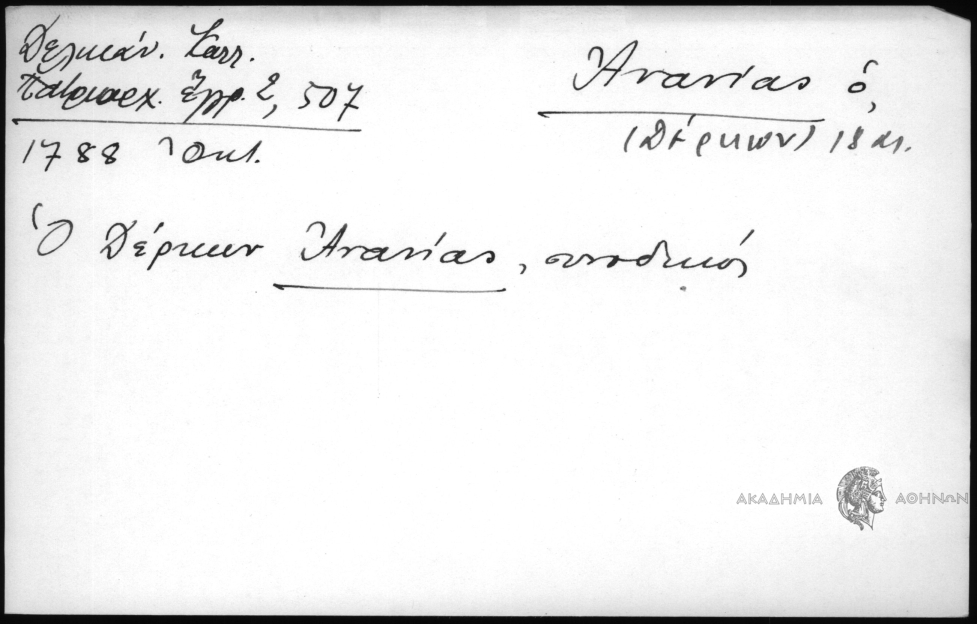 Δελικάν. Καλλ.
Πατριαρχ. Ἔγγρ. 2, 507
1788 Ὀκτ.
Ἀνανίας ὁ,
(Δέρκων) 18 αι.
Ὁ Δέρκων Ἀνανίας, συνοδικός
ΑΚΑΔΗΜΙΑ ΑΘΗΝΩΝ